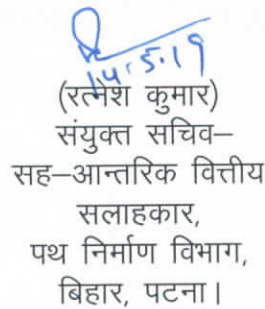 14.5.19
(रत्नेश कुमार)
संयुक्त सचिव–
सह–आन्तरिक वित्तीय
सलाहकार,
पथ निर्माण विभाग,
बिहार, पटना।